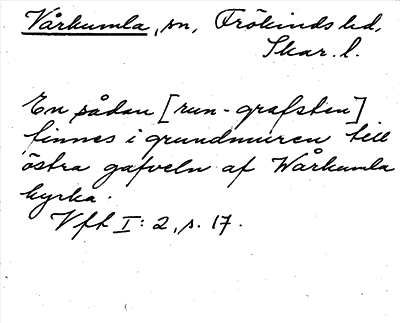 Vårkumla, sn, Frökinds hd,
Skar. l.
En sådan [run-grafsten]
finnes i grundmuren till
östra gafveln af Wårkumla
kyrka.
Vft I: 2, s. 17.